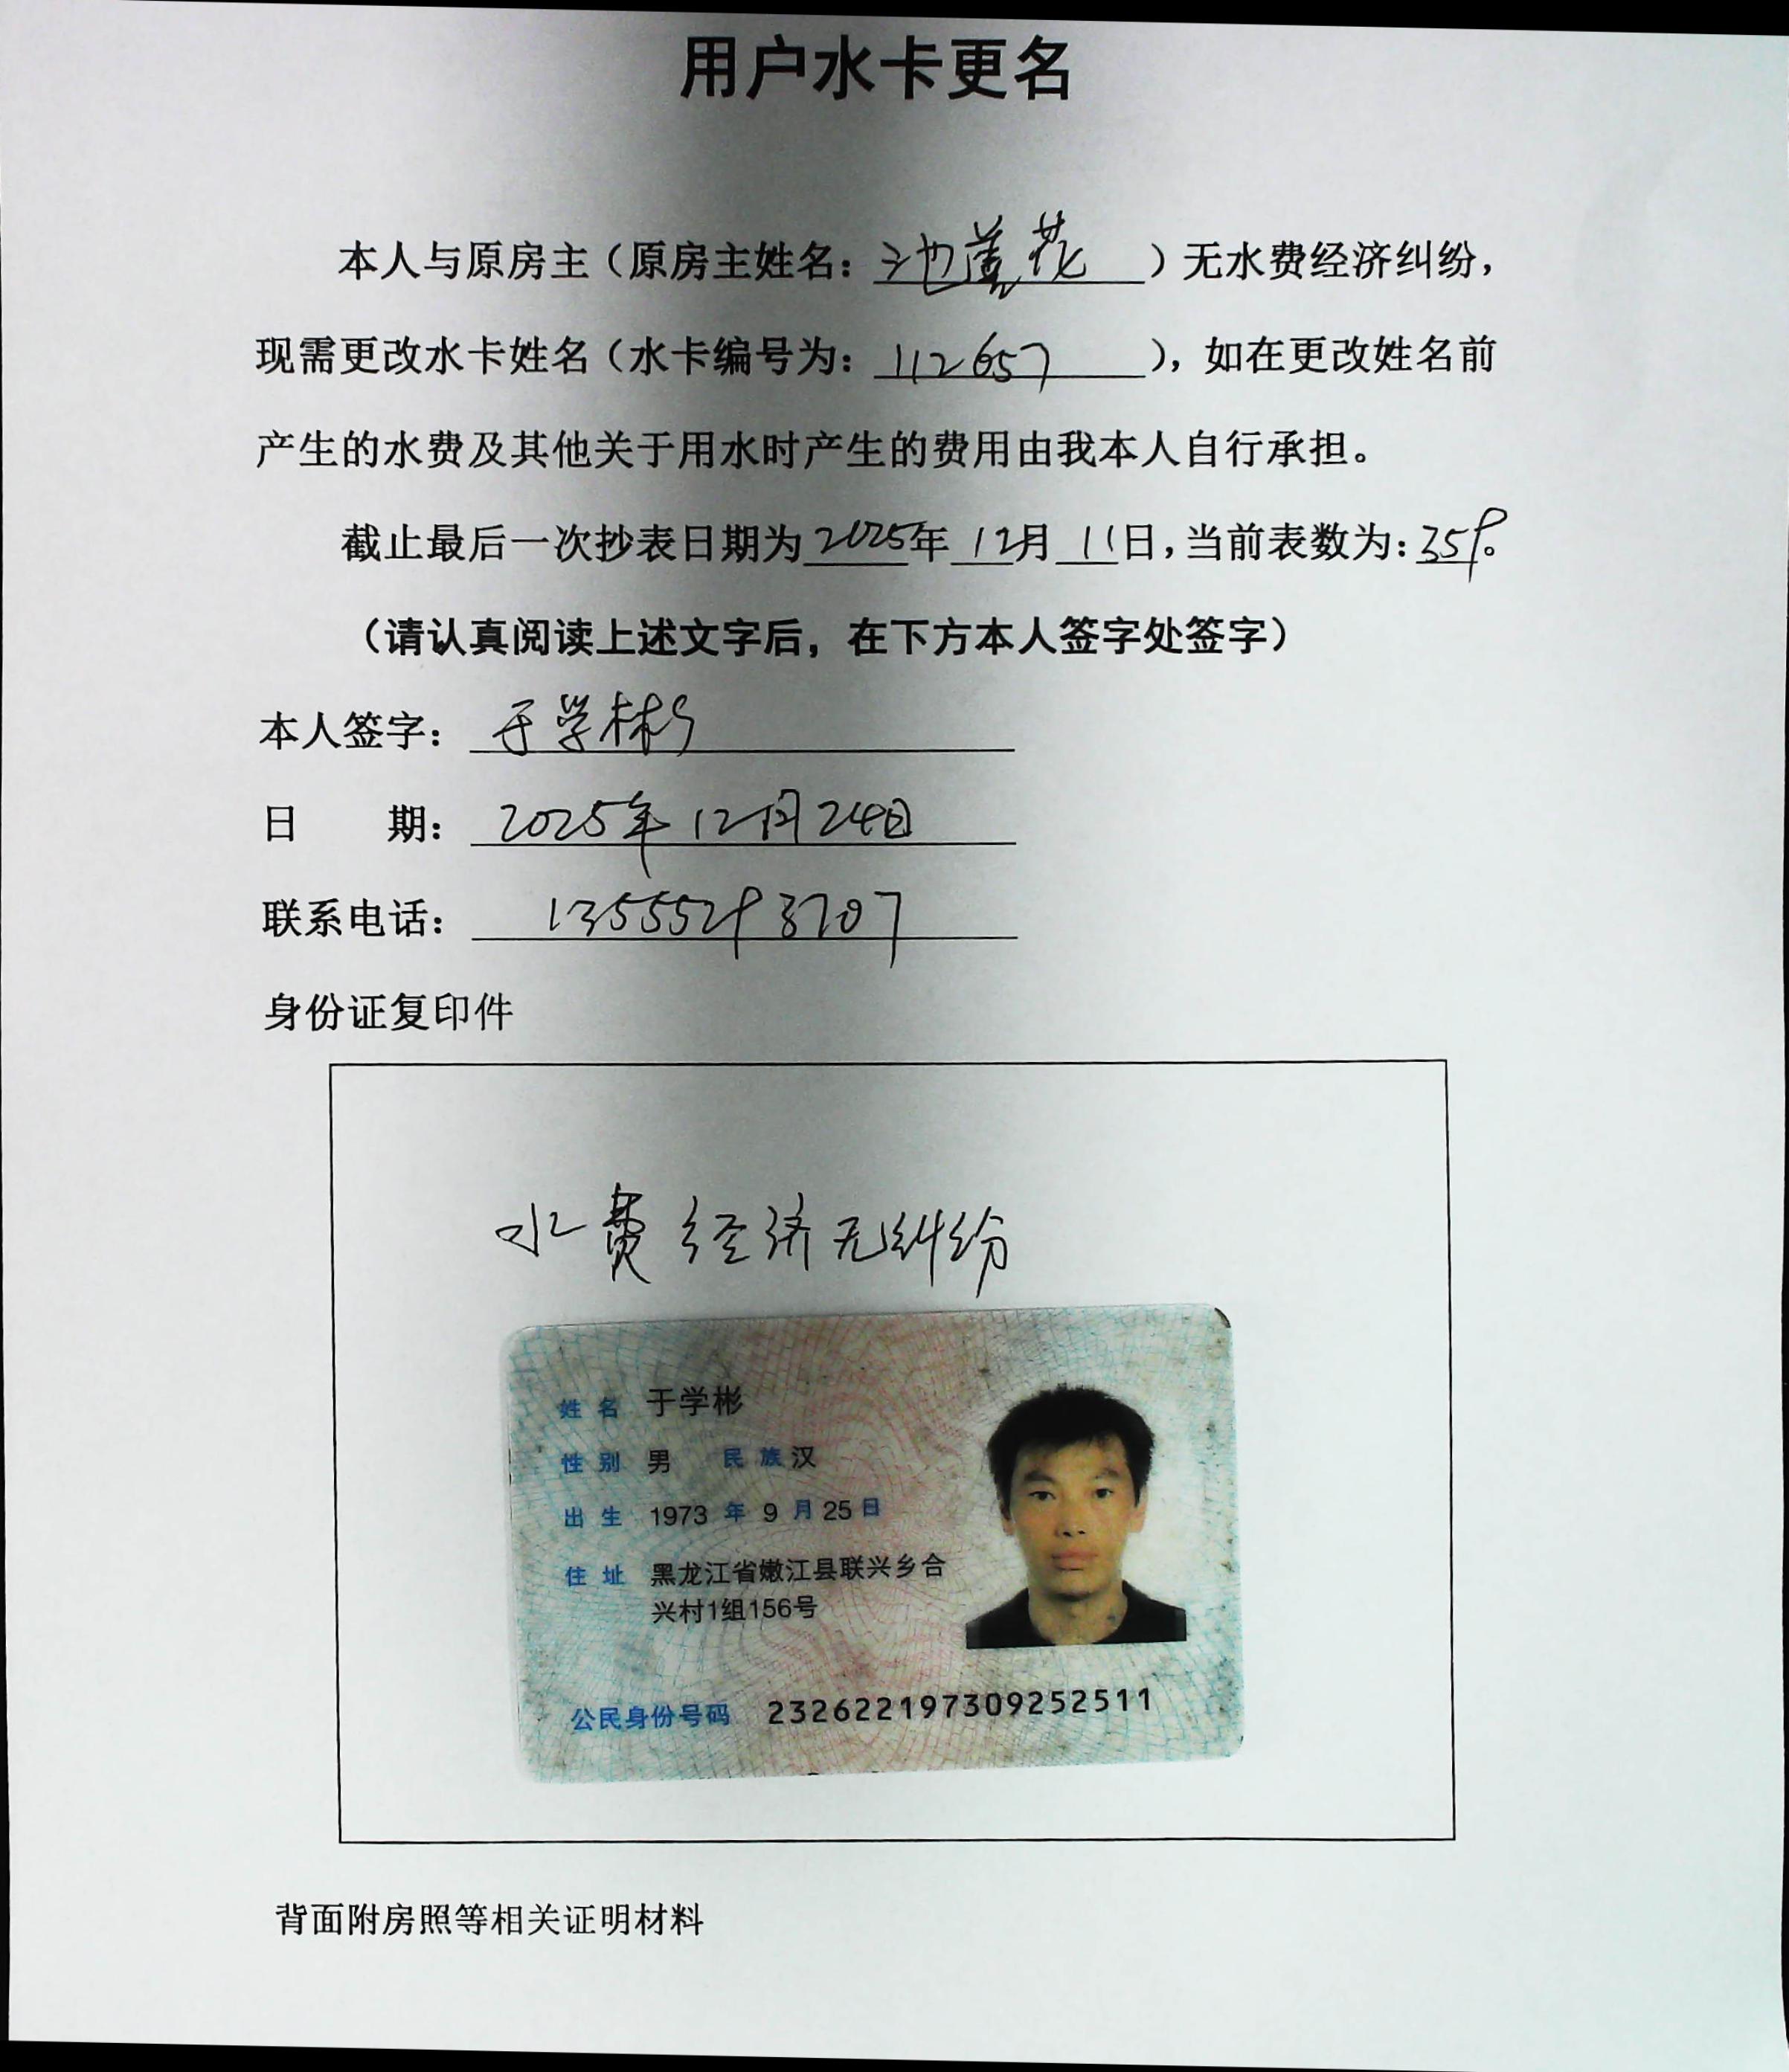 用户水卡更名
本人与原房主（原房主姓名：池莲花）无水费经济纠纷，
现需更改水卡姓名（水卡编号为：112657），如在更改姓名前
产生的水费及其他关于用水时产生的费用由我本人自行承担。
截止最后一次抄表日期为2025年12月11日，当前表数为：359。
（请认真阅读上述文字后，在下方本人签字处签字）
本人签字：于学彬
日 期：2025年12月24日
联系电话：13555293707
身份证复印件
水费经济无纠纷
姓名 于学彬
性别 男 民族 汉
出生 1973年9月25日
住址 黑龙江省嫩江县联兴乡合
兴村1组156号
公民身份号码 232622197309252511
背面附房照等相关证明材料